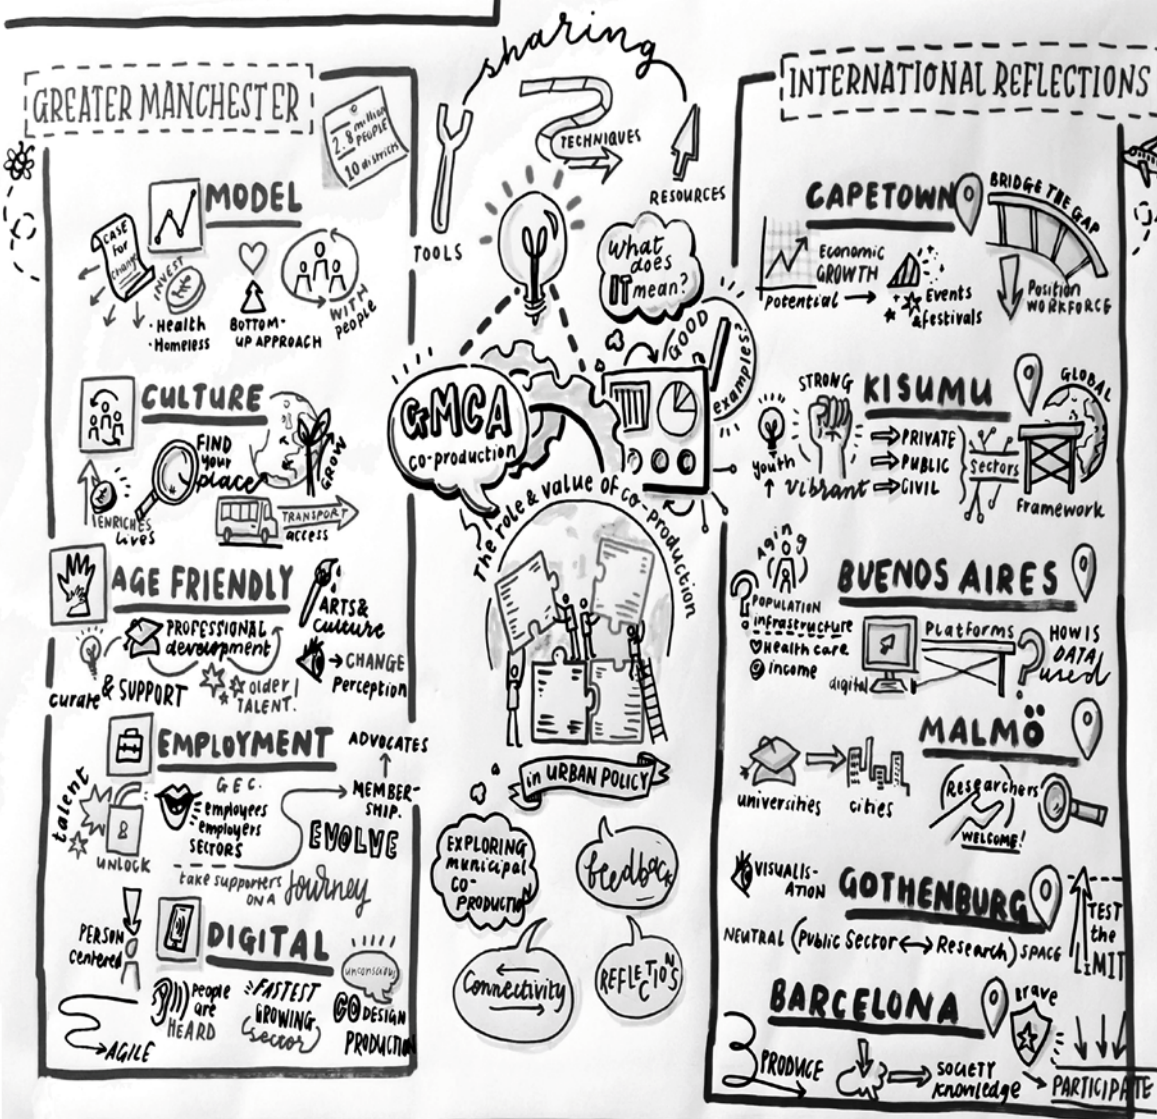 sharing
GREATER MANCHESTER
2.8 million
PEOPLE
10 districts
MODEL
CASE
for
change
INVEST
• Health
• Homeless
BOTTOM-
UP APPROACH
WITH
people
CULTURE
FIND
your
place
GROW
ENRICHES
lives
TRANSPORT
access
AGE FRIENDLY
PROFESSIONAL
development
ARTS &
culture
CHANGE
Perception
curate & SUPPORT
older
TALENT.
EMPLOYMENT
ADVOCATES
MEMBER-
SHIP.
talent
UNLOCK
G.E.C.
employees
employers
SECTORS
EVOLVE
take supporters
ON A
journey
DIGITAL
PERSON
centered
unconscious
people
are
HEARD
FASTEST
GROWING
sector
CO DESIGN
PRODUCTION
AGILE
TOOLS
TECHNIQUES
RESOURCES
What
does
IT
mean?
GOOD
examples:
GMCA
co-production
The role & value of co-production
in URBAN POLICY
EXPLORING
municipal
CO-
PRODUCTION
feedback
Connectivity
REFLECTIONS
INTERNATIONAL REFLECTIONS
CAPETOWN
BRIDGE THE GAP
Economic
GROWTH
potential
Events
& festivals
Position
WORKFORCE
KISUMU
STRONG
GLOBAL
youth
Vibrant
PRIVATE
PUBLIC
CIVIL
Sectors
framework
BUENOS AIRES
Aging
POPULATION
infrastructure
Health care
income
Platforms
digital
HOW IS
DATA
used
MALMÖ
universities
cities
Researchers
WELCOME!
GOTHENBURG
VISUALIS-
ATION
NEUTRAL (Public Sector ↔ Research) SPACE
TEST
the
LIMIT
BARCELONA
Brave
PRODUCE
SOCIETY
knowledge
PARTICIPATE